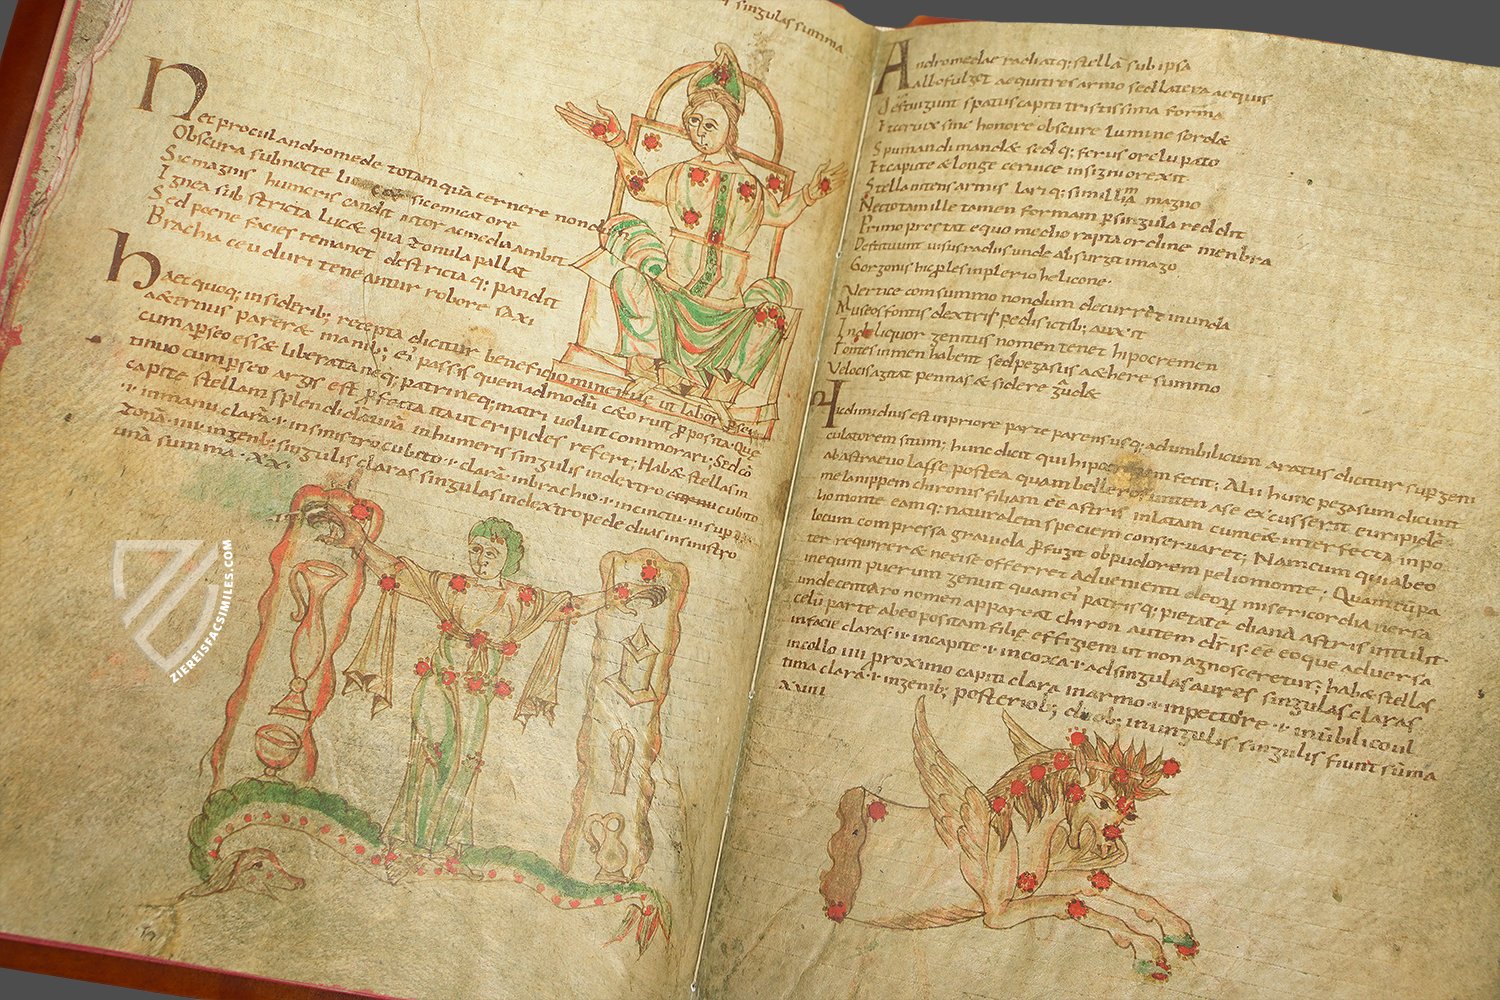 singulas summa
Net procul andromede totam quā cernere nondum
Obscura sub nocte sic emicat ore
Sic magnis humeris candet nitor acuncola ambit
Ignea sub stricta lucet qua zonula pallat
Sed poene facies remanet destricta q; pandit
Brachia ceu duri teneantur robore saxi
haec quoq; in siderib; recepta dicitur beneficio minervae ut labor
aeternus pareret manib; ei passis quemadmodū ceto fuit pposita. Quę
cum apseo esset liberata neq; patri neq; matri voluit commorari; Sed cō
tinuo cum pseo argis est pfecta ita ut eripides refert; Habet stellas in
capite stellam splendidā unā in humeris singulis in dextro cubito
·i· in manu clarā ·i· in sinistro cubito ·i· clarā in brachio ·i· in cinctu ·iii· supra
zonā ·iiii· in genib; singulis claras singulas in dextro pede duas in sinistro
unā summa · xx ·
Andromedae radiat q; stella sub ipsa
aluo fulget aequi tres armo sed latera aequis
Distingunt spatiis capiti tristissima forma
Et ceruix sine honore obscure lumine sordet
Spumandi mandet sed q; ferus ore lupato
Et capite & longe ceruice insignior exit
Stella nitens armis lari q; simillima magno
Nec totam ille tamen formam p singula reddit
Primo prestat equo medio rapta ordine menbra
Destituunt uisus radius unde absurgit imago
Gorgonis hic ples implerio helicone·
Vertice com summo nondum decurrēt inunda
Museos fontis dextris pedis ictib; auxit
Inde liquor genitus nomen tenet hipocremen
Fontes in men habent sed pegasus aethere summo
Velocis agitat pennas & sidere gaudet
Hic dimidius est in priore parte parens usq; ad umbilicum aratus dicitur sup geni
culatorem suum; hunc dicit qui fecit; Alii hunc pegasum dicunt
ab astra euolasse postea quam ase excusserit euripidē
melanippem chironis filiam eē astris inlatam cum & inter fecta in po
lio monte eam q; naturalem speciem conservaret; Nam cum quia beo
locum compressa gravida pfugit ob pudorem pelio monte; Quam cū pa
ter requireret nec se offerret aduenienti deorū misericordia versa
in equm puerum genuit quam ei patris q; pietate diana astris intulit
unde centauro nomen apparet chiron autem dr̄ is eē eo que aduersa
celū parte abeo positam filię effigiem ut non agnosceretur; habet stellas
in facie claras ·ii· in capite ·i· in coxa ·i· ad singulas aures singulas claras
in collo ·iiii· proximo capiti clara in armo ·i· in pectore ·i· in ūbilico ul
tima clara ·i· in genib; posteriorib; duob; in ungulis singulis fiunt sūma
xviii
ZIEREISFACSIMILES.COM